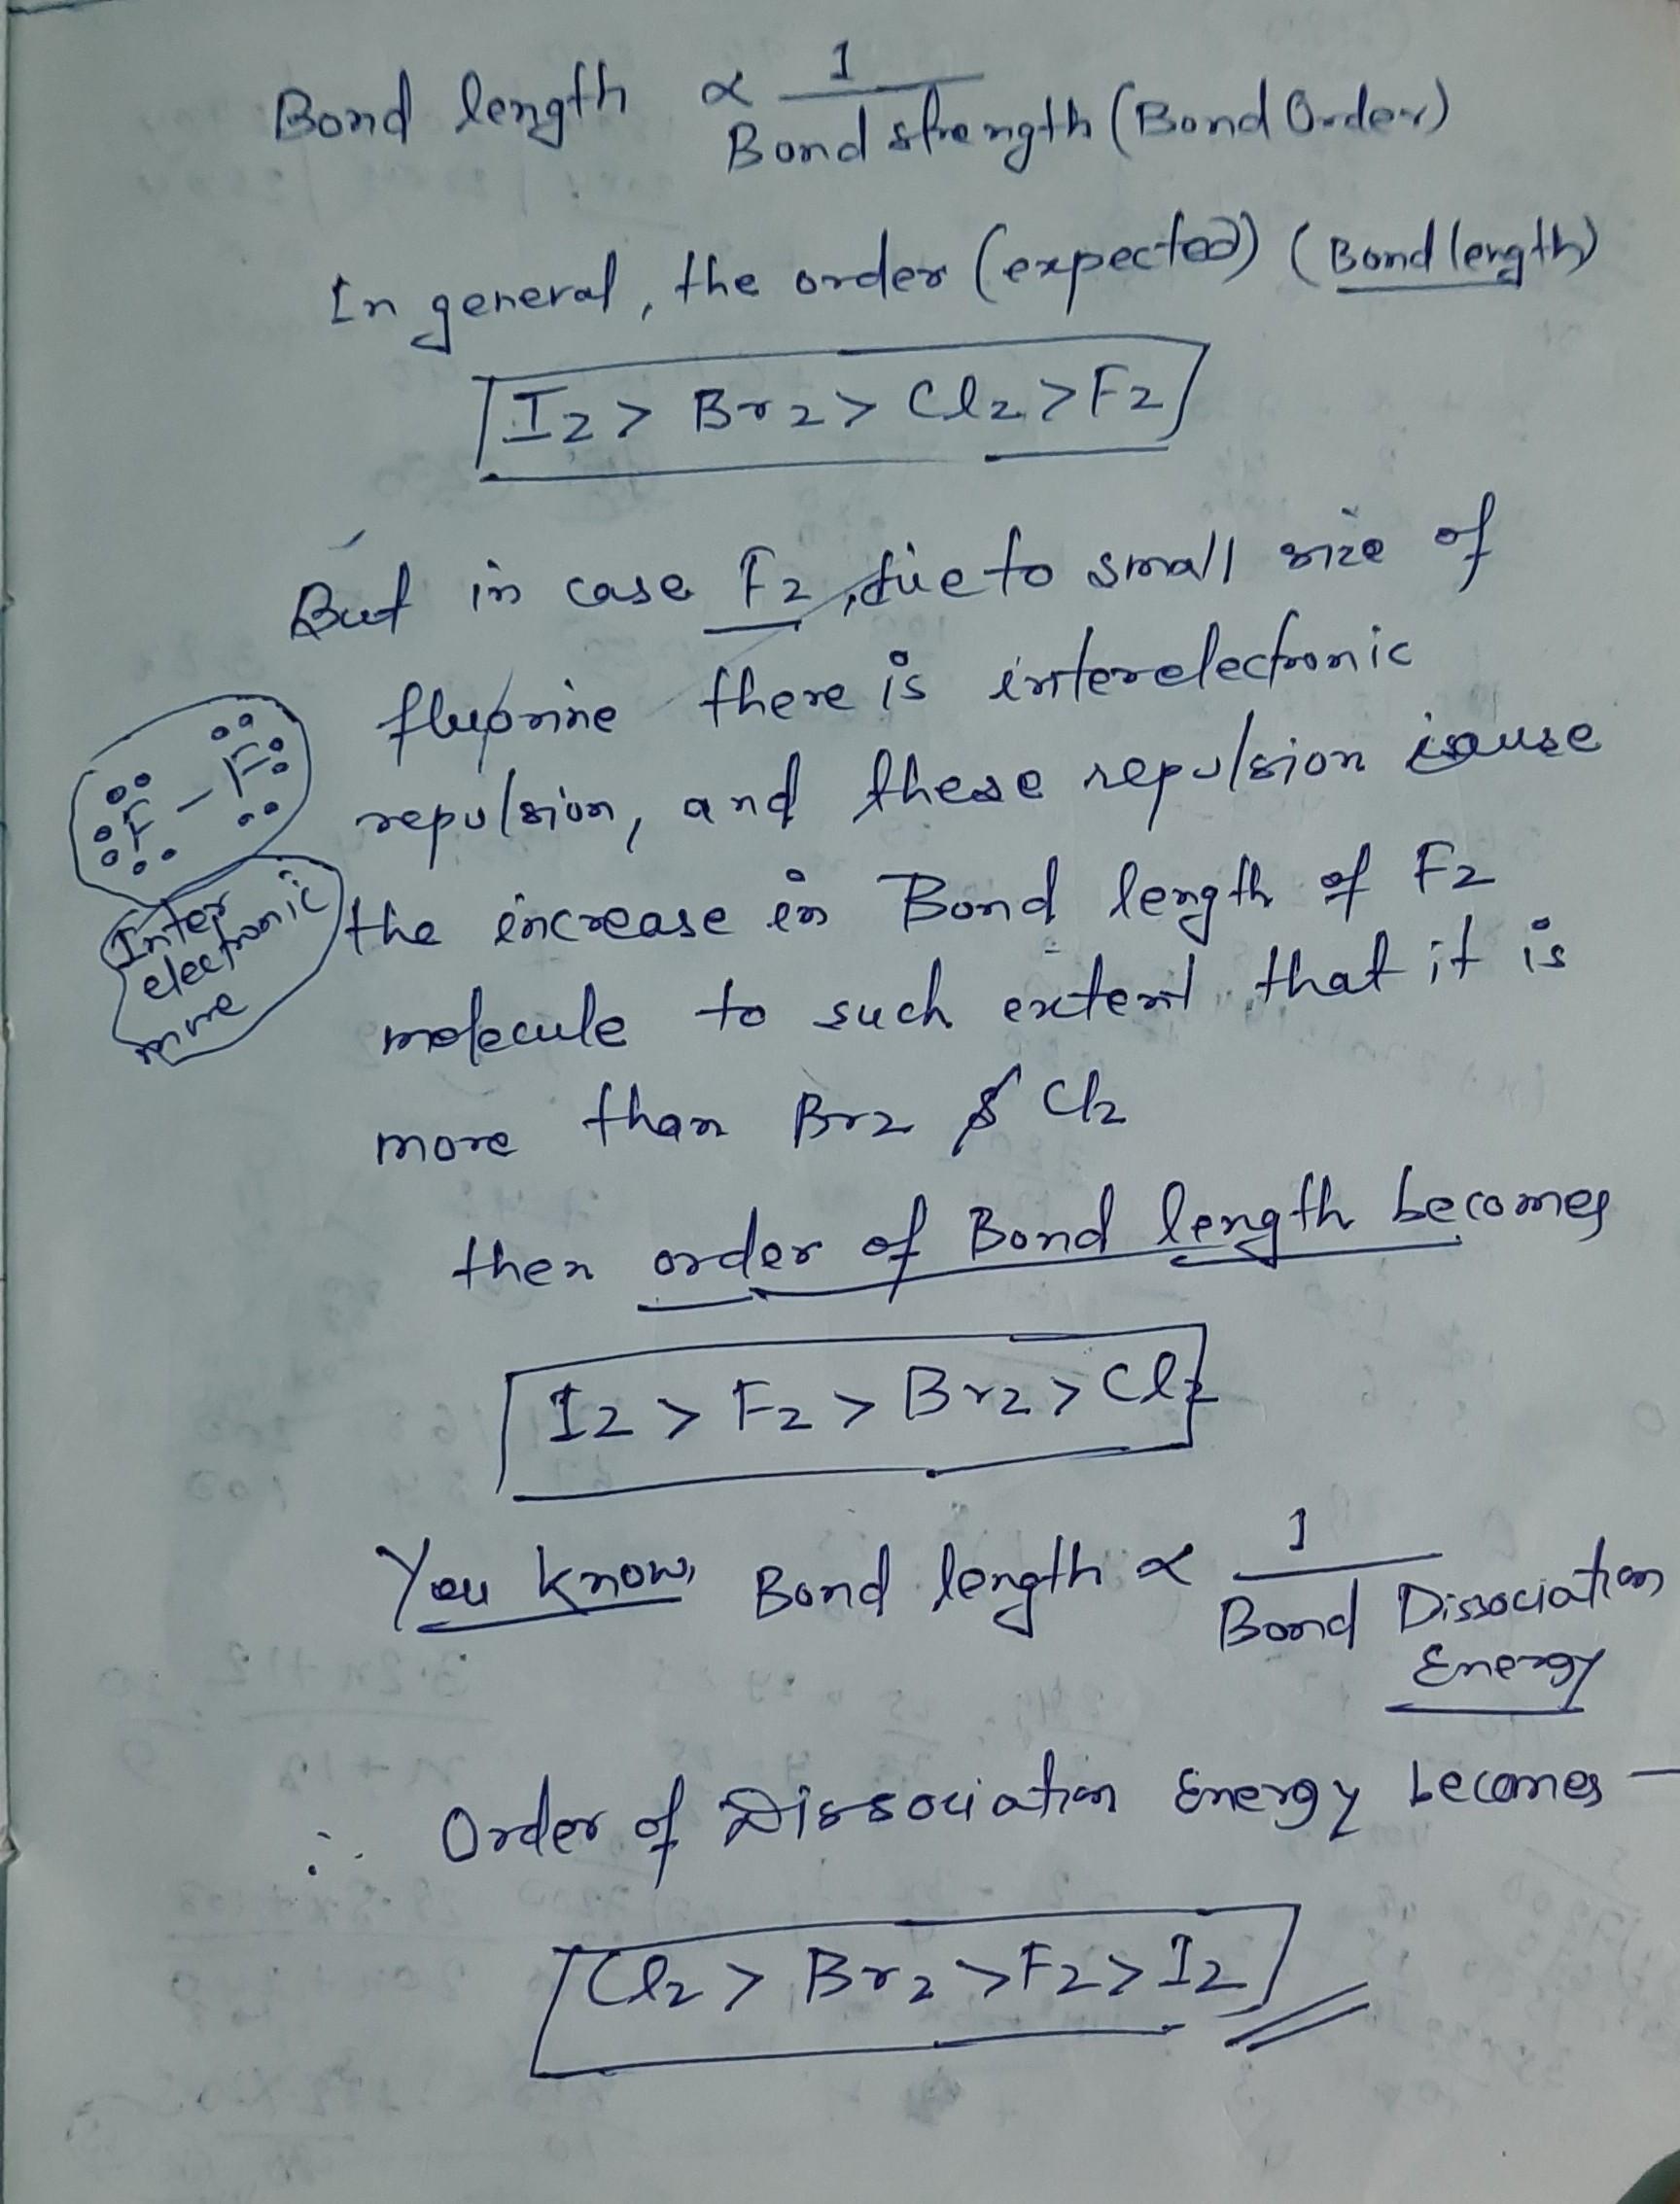 Bond length ∝ 1
Bond strength (Bond Order)
In general, the order (expected) (Bond length)
I2 > Br2 > Cl2 > F2
But in case F2, due to small size of
fluorine there is interelectronic
repulsion, and these repulsion cause
the increase in Bond length of F2
molecule to such extent that it is
more than Br2 & Cl2
F - F
Inter
electronic
more
then order of Bond length becomes
I2 > F2 > Br2 > Cl2
You know, Bond length ∝ 1
Bond Dissociation
Energy
∴ Order of Dissociation Energy becomes -
Cl2 > Br2 > F2 > I2